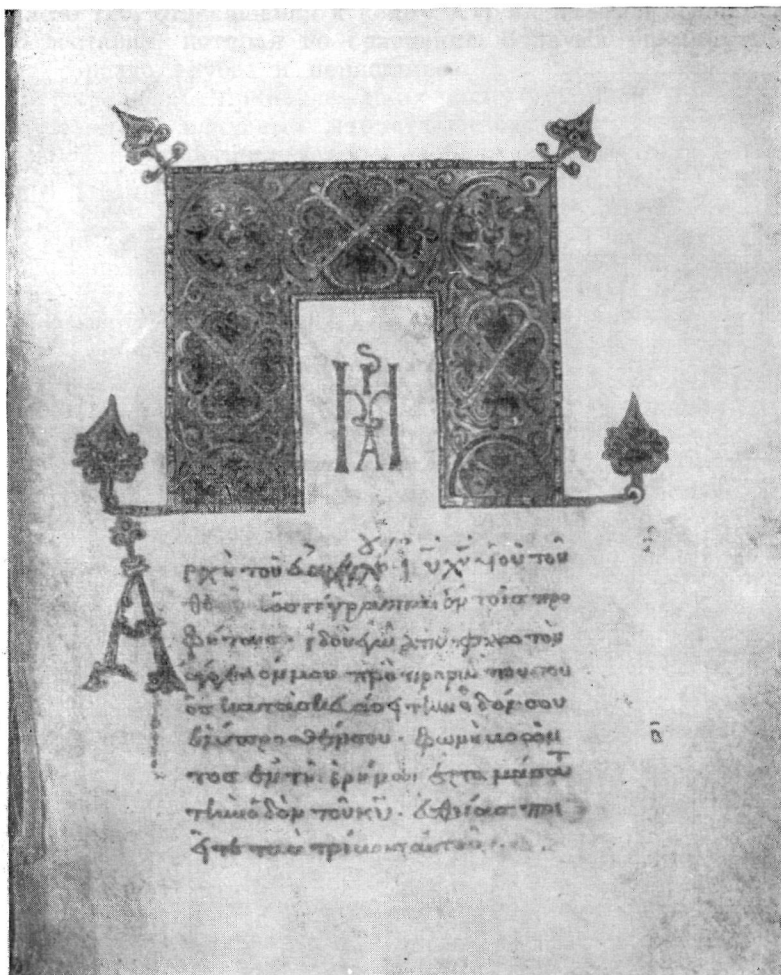 Ἀρχὴ τοῦ εὐαγγελίου ῑῡ χ̄ῡ υἱοῦ τοῦ
θ̄ῡ ὡς γέγραπται ἐν τοῖς προ
φήταις · ἰδοὺ ἐγὼ ἀποστέλλω τὸν
ἄγγελόν μου πρὸ προσώπου σου
ὃς κατασκευάσει τὴν ὁδόν σου
ἔμπροσθέν σου · φωνὴ βοῶν
τος ἐν τῇ ἐρήμῳ ἑτοιμάσατε
τὴν ὁδὸν κ̄ῡ · εὐθείας ποι
εῖτε τὰς τρίβους αὐτοῦ